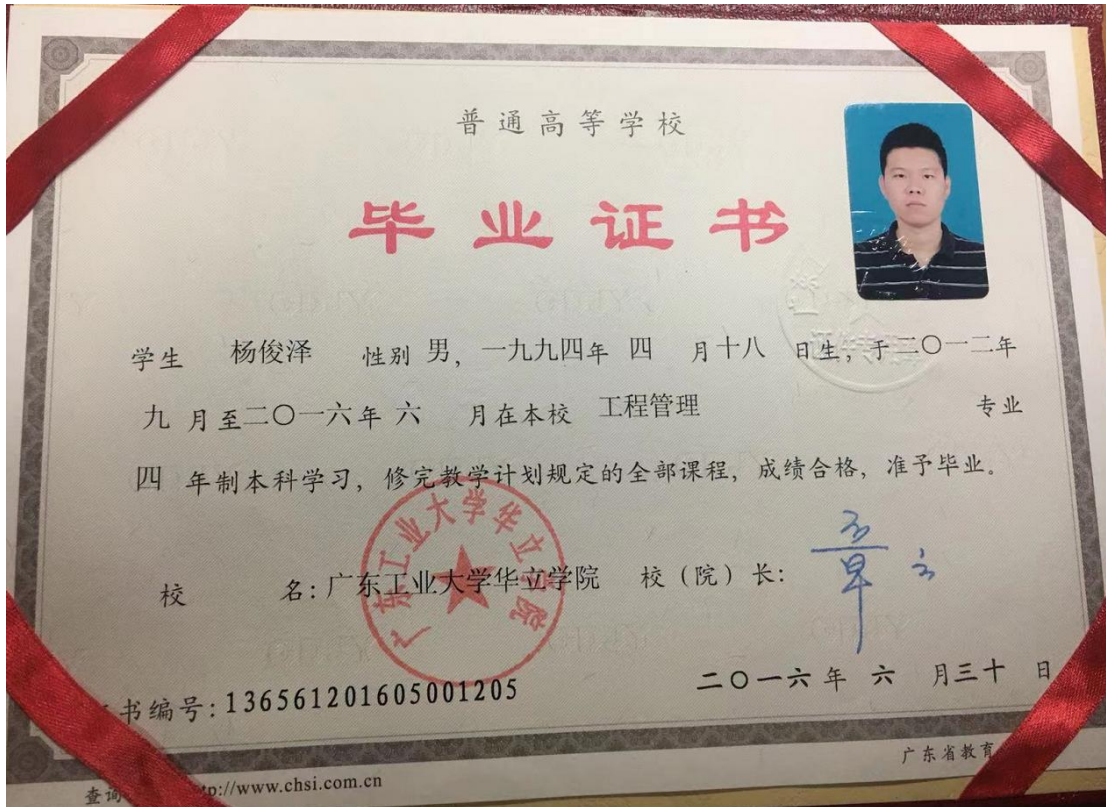 普通高等学校
毕业证书
学生 杨俊泽 性别 男，一九九四年 四 月十八 日生，于二〇一二年
九 月至二〇一六年 六 月在本校 工程管理 专业
四 年制本科学习，修完教学计划规定的全部课程，成绩合格，准予毕业。
广东工业大学华立学院
校 名：广东工业大学华立学院 校（院）长：
二〇一六年 六 月三十 日
书编号：136561201605001205
广东省教育
查询 tp://www.chsi.com.cn